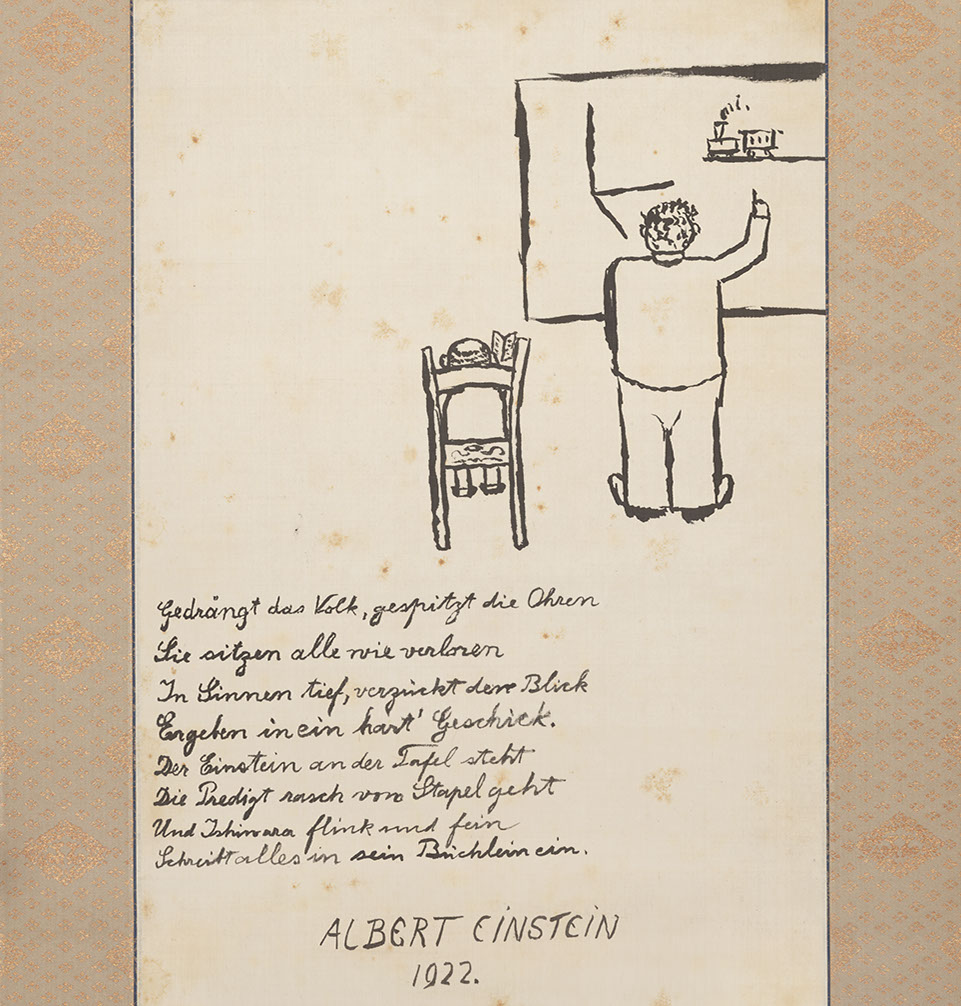 Gedrängt das Volk, gespitzt die Ohren
Sie sitzen alle wie verloren
In Sinnen tief, verzückt den Blick
Ergeben in ein hart' Geschick.
Der Einstein an der Tafel steht
Die Predigt rasch vom Stapel geht
Und Ishiwara flink und fein
Schreibt alles in sein Büchlein ein.
ALBERT EINSTEIN
1922.